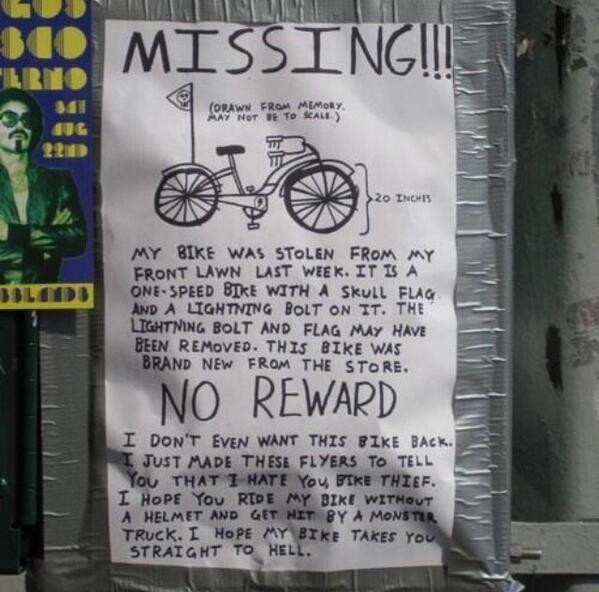 SCO
SAT
AUG
22ND
MISSING!!!
(DRAWN FROM MEMORY.
MAY NOT BE TO SCALE.)
20 INCHES
MY BIKE WAS STOLEN FROM MY
FRONT LAWN LAST WEEK. IT IS A
ONE-SPEED BIKE WITH A SKULL FLAG
AND A LIGHTNING BOLT ON IT. THE
LIGHTNING BOLT AND FLAG MAY HAVE
BEEN REMOVED. THIS BIKE WAS
BRAND NEW FROM THE STORE.
NO REWARD
I DON'T EVEN WANT THIS BIKE BACK.
I JUST MADE THESE FLYERS TO TELL
YOU THAT I HATE YOU, BIKE THIEF.
I HOPE YOU RIDE MY BIKE WITHOUT
A HELMET AND GET HIT BY A MONSTER
TRUCK. I HOPE MY BIKE TAKES YOU
STRAIGHT TO HELL.